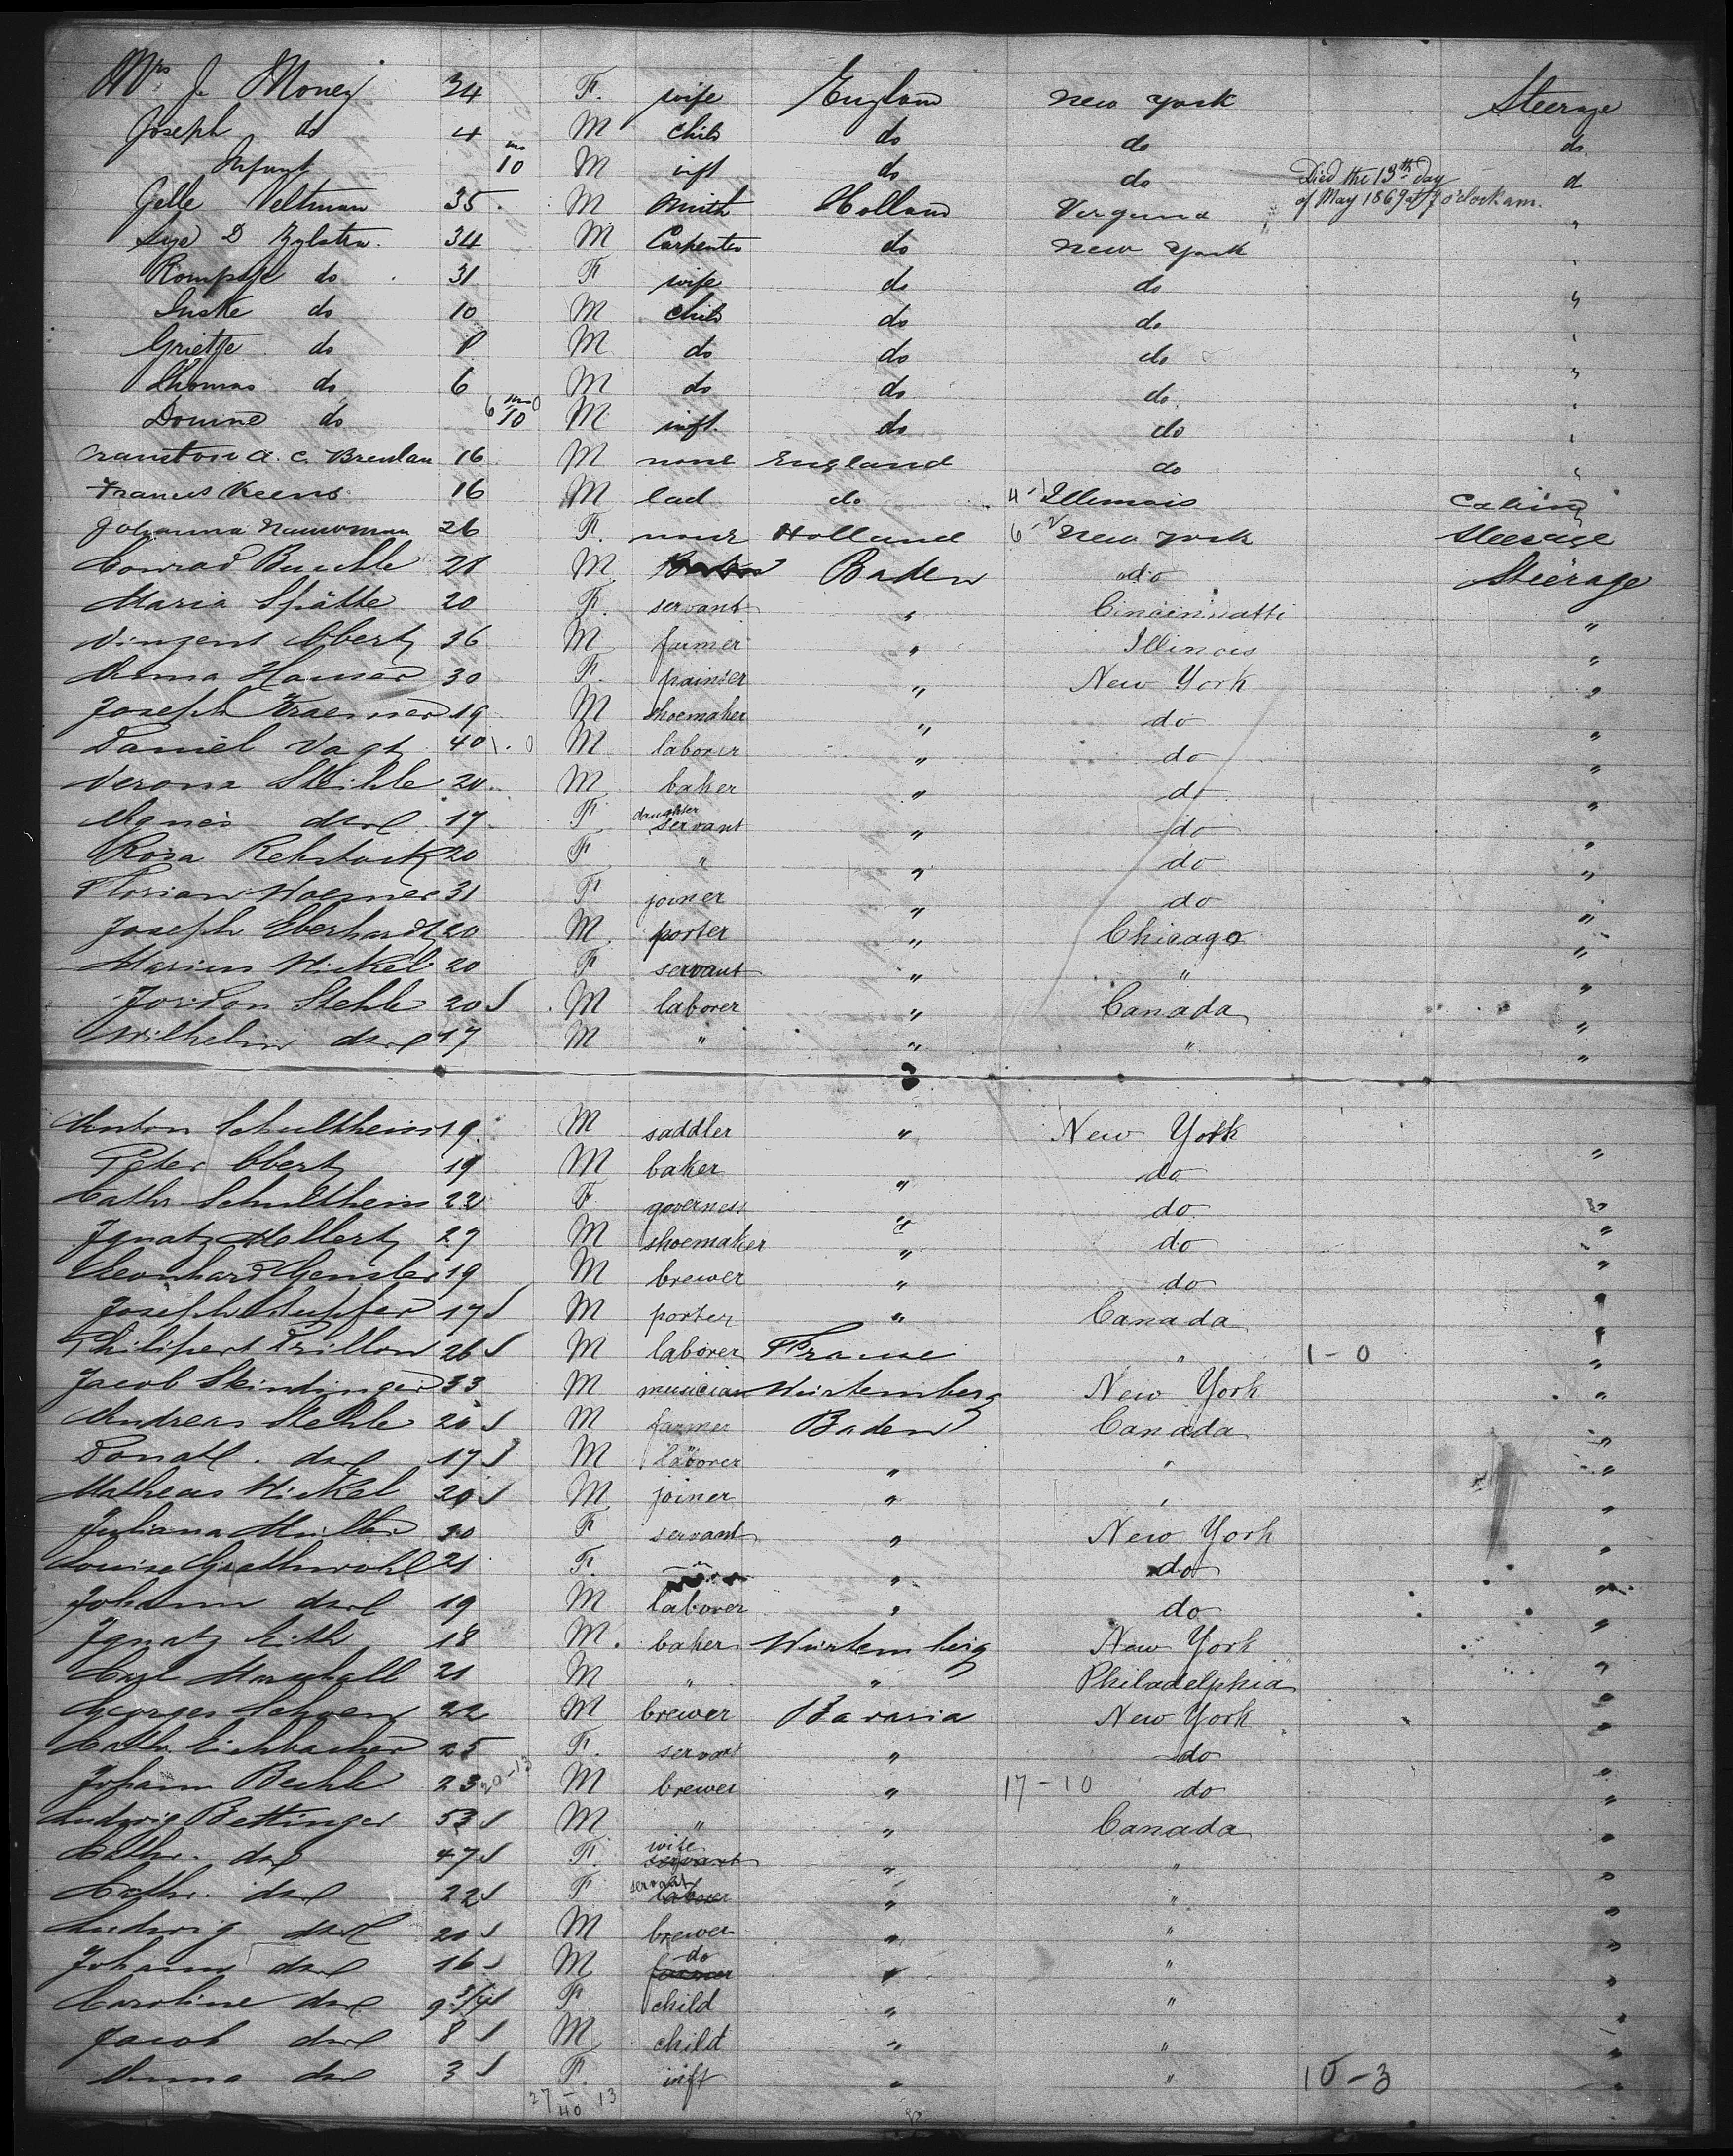 Mrs J. Money 34 F. wife England New York Steerage
Joseph do 4 M child do do do.
Infant 10 mo M inft do do Died the 13th day of May 1869 at 7 o'clock am. d
Gelle Veltman 35 M Smith Holland Verginia "
D Zylstra 34 M Carpenter do New York "
do 31 F wife do do "
do 10 M child do do "
Grietje do 8 M do do do "
Thomas do 6 M do do do "
Douwe do 10 M inft. do do "
Cranston a. c. 16 M none England do "
Francis Keens 16 M lad do 4 - 1 Illinois Cabin
Johanna 26 F. none Holland 6 - 2 New York Steerage
Conrad Buechle 21 M Baden do Steerage
Maria Spätte 20 F. servant " Cincinnatti "
Vinzent Obert 36 M farmer " Illinois "
Anna Hauser 30 F. painter " New York "
Joseph Kraemer 19 M shoemaker " do "
Daniel Vogt 40 M laborer " do "
Verona Stihle 20 M baker " do "
Agnes 17 F daughter servant " do "
Rosa Rebstock 20 F " " do "
Florian Woerner 31 F joiner " do "
Joseph Eberhardt 20 M porter " Chicago "
Marius Nickel 20 F servant " " "
Jordan Stehle 20 M laborer " Canada "
Wilhelm 17 M " " " "
Anton Schultheiss 19 M saddler " New York "
Peter Obert 19 M baker " do "
Cathr. Schultheiss 22 F governess " do "
Ignatz Mellert 29 M shoemaker " do "
Leonhard Gensler 19 M brewer " do "
Joseph Stupfer 17 M porter " Canada "
Philipert Drillon 26 M laborer France " 1 - 0 "
Jacob Skindinger 33 M musician Würtemberg New York "
Andreas Stehle 20 M farmer Baden Canada "
Donatt 17 M laborer " " "
Matheas Nickel 20 M joiner " " "
Juliana Müller 30 F servant " New York "
Louise Graethwohl 21 F. " " do "
Johann 19 M laborer " do "
Ignatz Eith 18 M. baker Würtemberg New York "
Carl Marschall 21 M " " Philadelphia "
Georges Schoen 22 M brewer Bavaria New York "
Cathr. Eichbacher 25 F. servant " do "
Johann Bechle 23 20-13 M brewer " 17-10 do "
Ludwig Bettinger 53 M " " Canada "
Cathr. 47 F. wife servant " " "
Cathr. 22 F servant laborer " " "
Ludwig 20 M brewer " " "
Johann 16 M do farmer " " "
Caroline 9 3/4 F child " " "
Jacob 8 M child " " "
Anna 3 F. inft " " 10-3 "
27 - 13
40